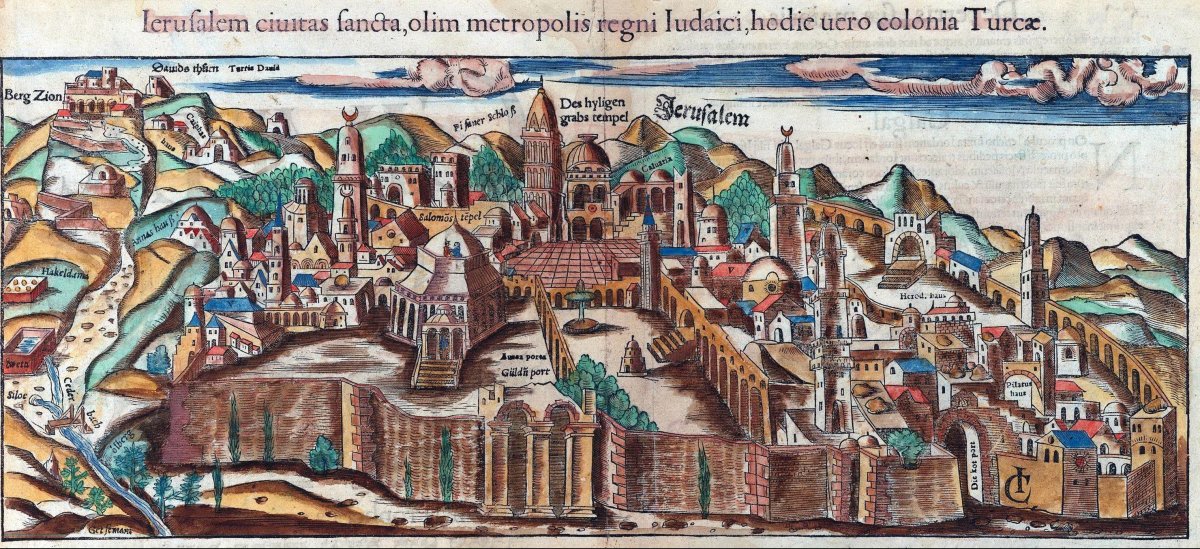 Ierusalem ciuitas sancta, olim metropolis regni Iudaici, hodie uero colonia Turcæ.
Dauids thurn Turris Dauid
Berg Zion
Caiphas haus
Pisaner Schloß
Des hyligen
grabs tempel
Jerusalem
Caluaria
Salomōs tēpel
Annas hauß
Hakeldama
Herod. haus
Aurea porta
Güldē port
Pilatus
haus
Siloe
Ceder bach
Ölberg
Die kot port
Getsemani